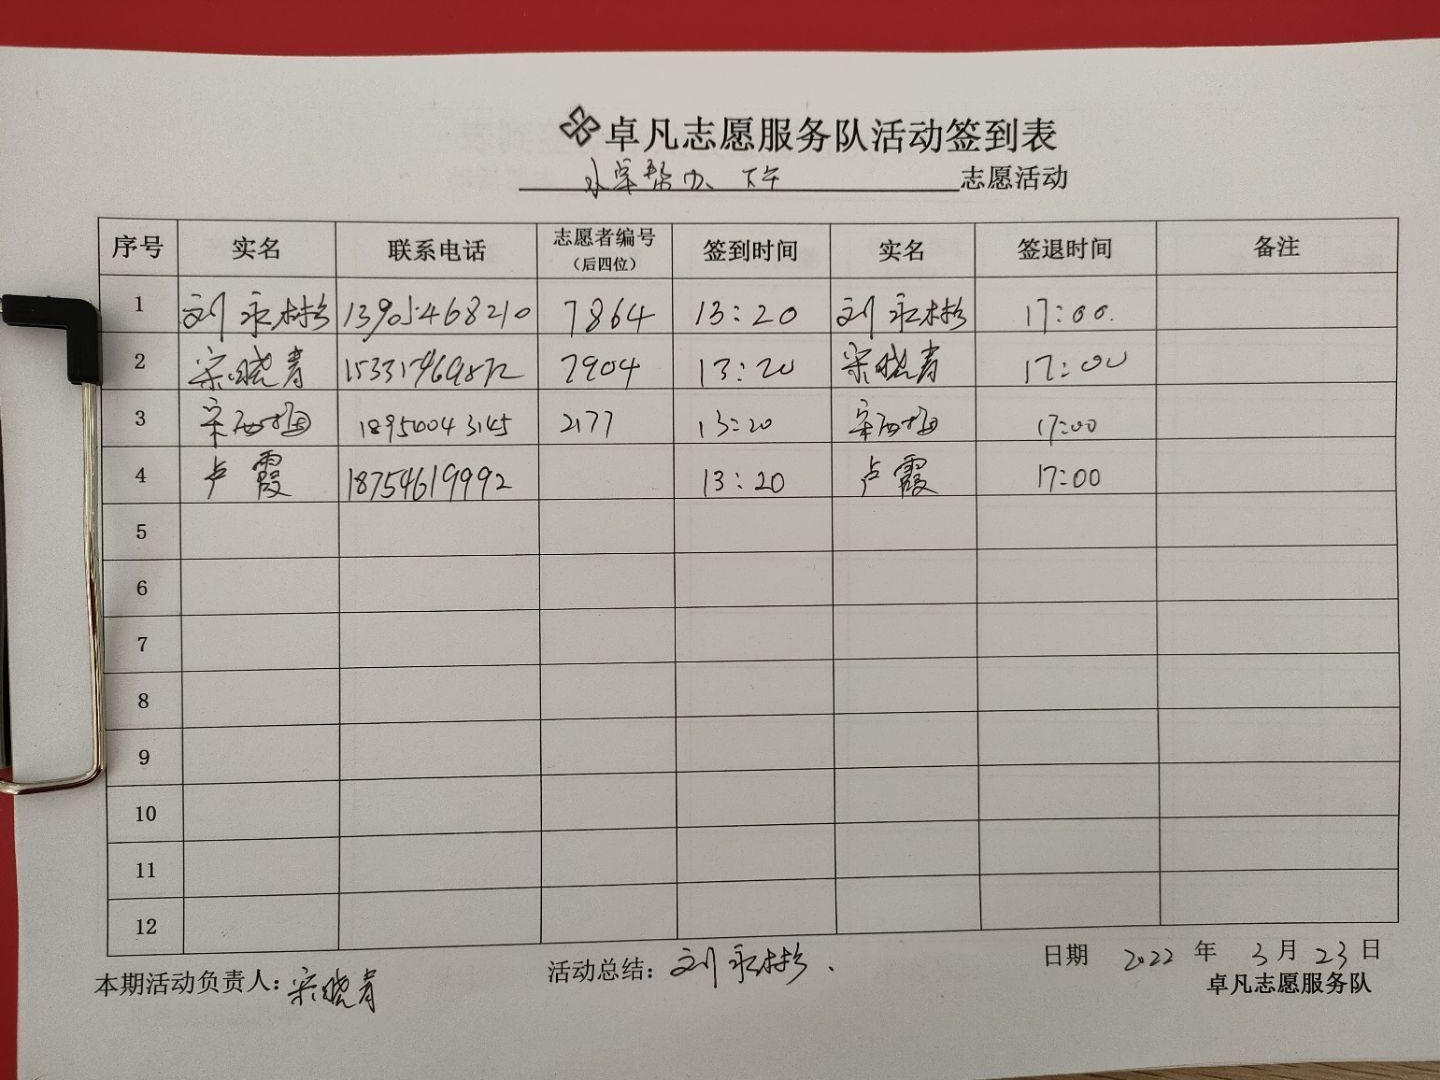 卓凡志愿服务队活动签到表
小卓帮办、下午 志愿活动
序号 实名 联系电话 志愿者编号（后四位） 签到时间 实名 签退时间 备注
1 刘永彬 7864 13:20 刘永彬 17:00
2 宋晓青 7904 13:20 宋晓青 17:00
3 2177 13:20 17:00
4 卢霞 18754619992 13:20 卢霞 17:00
5
6
7
8
9
10
11
12
本期活动负责人：宋晓青 活动总结：刘永彬 日期 2022 年 3 月 23 日
卓凡志愿服务队